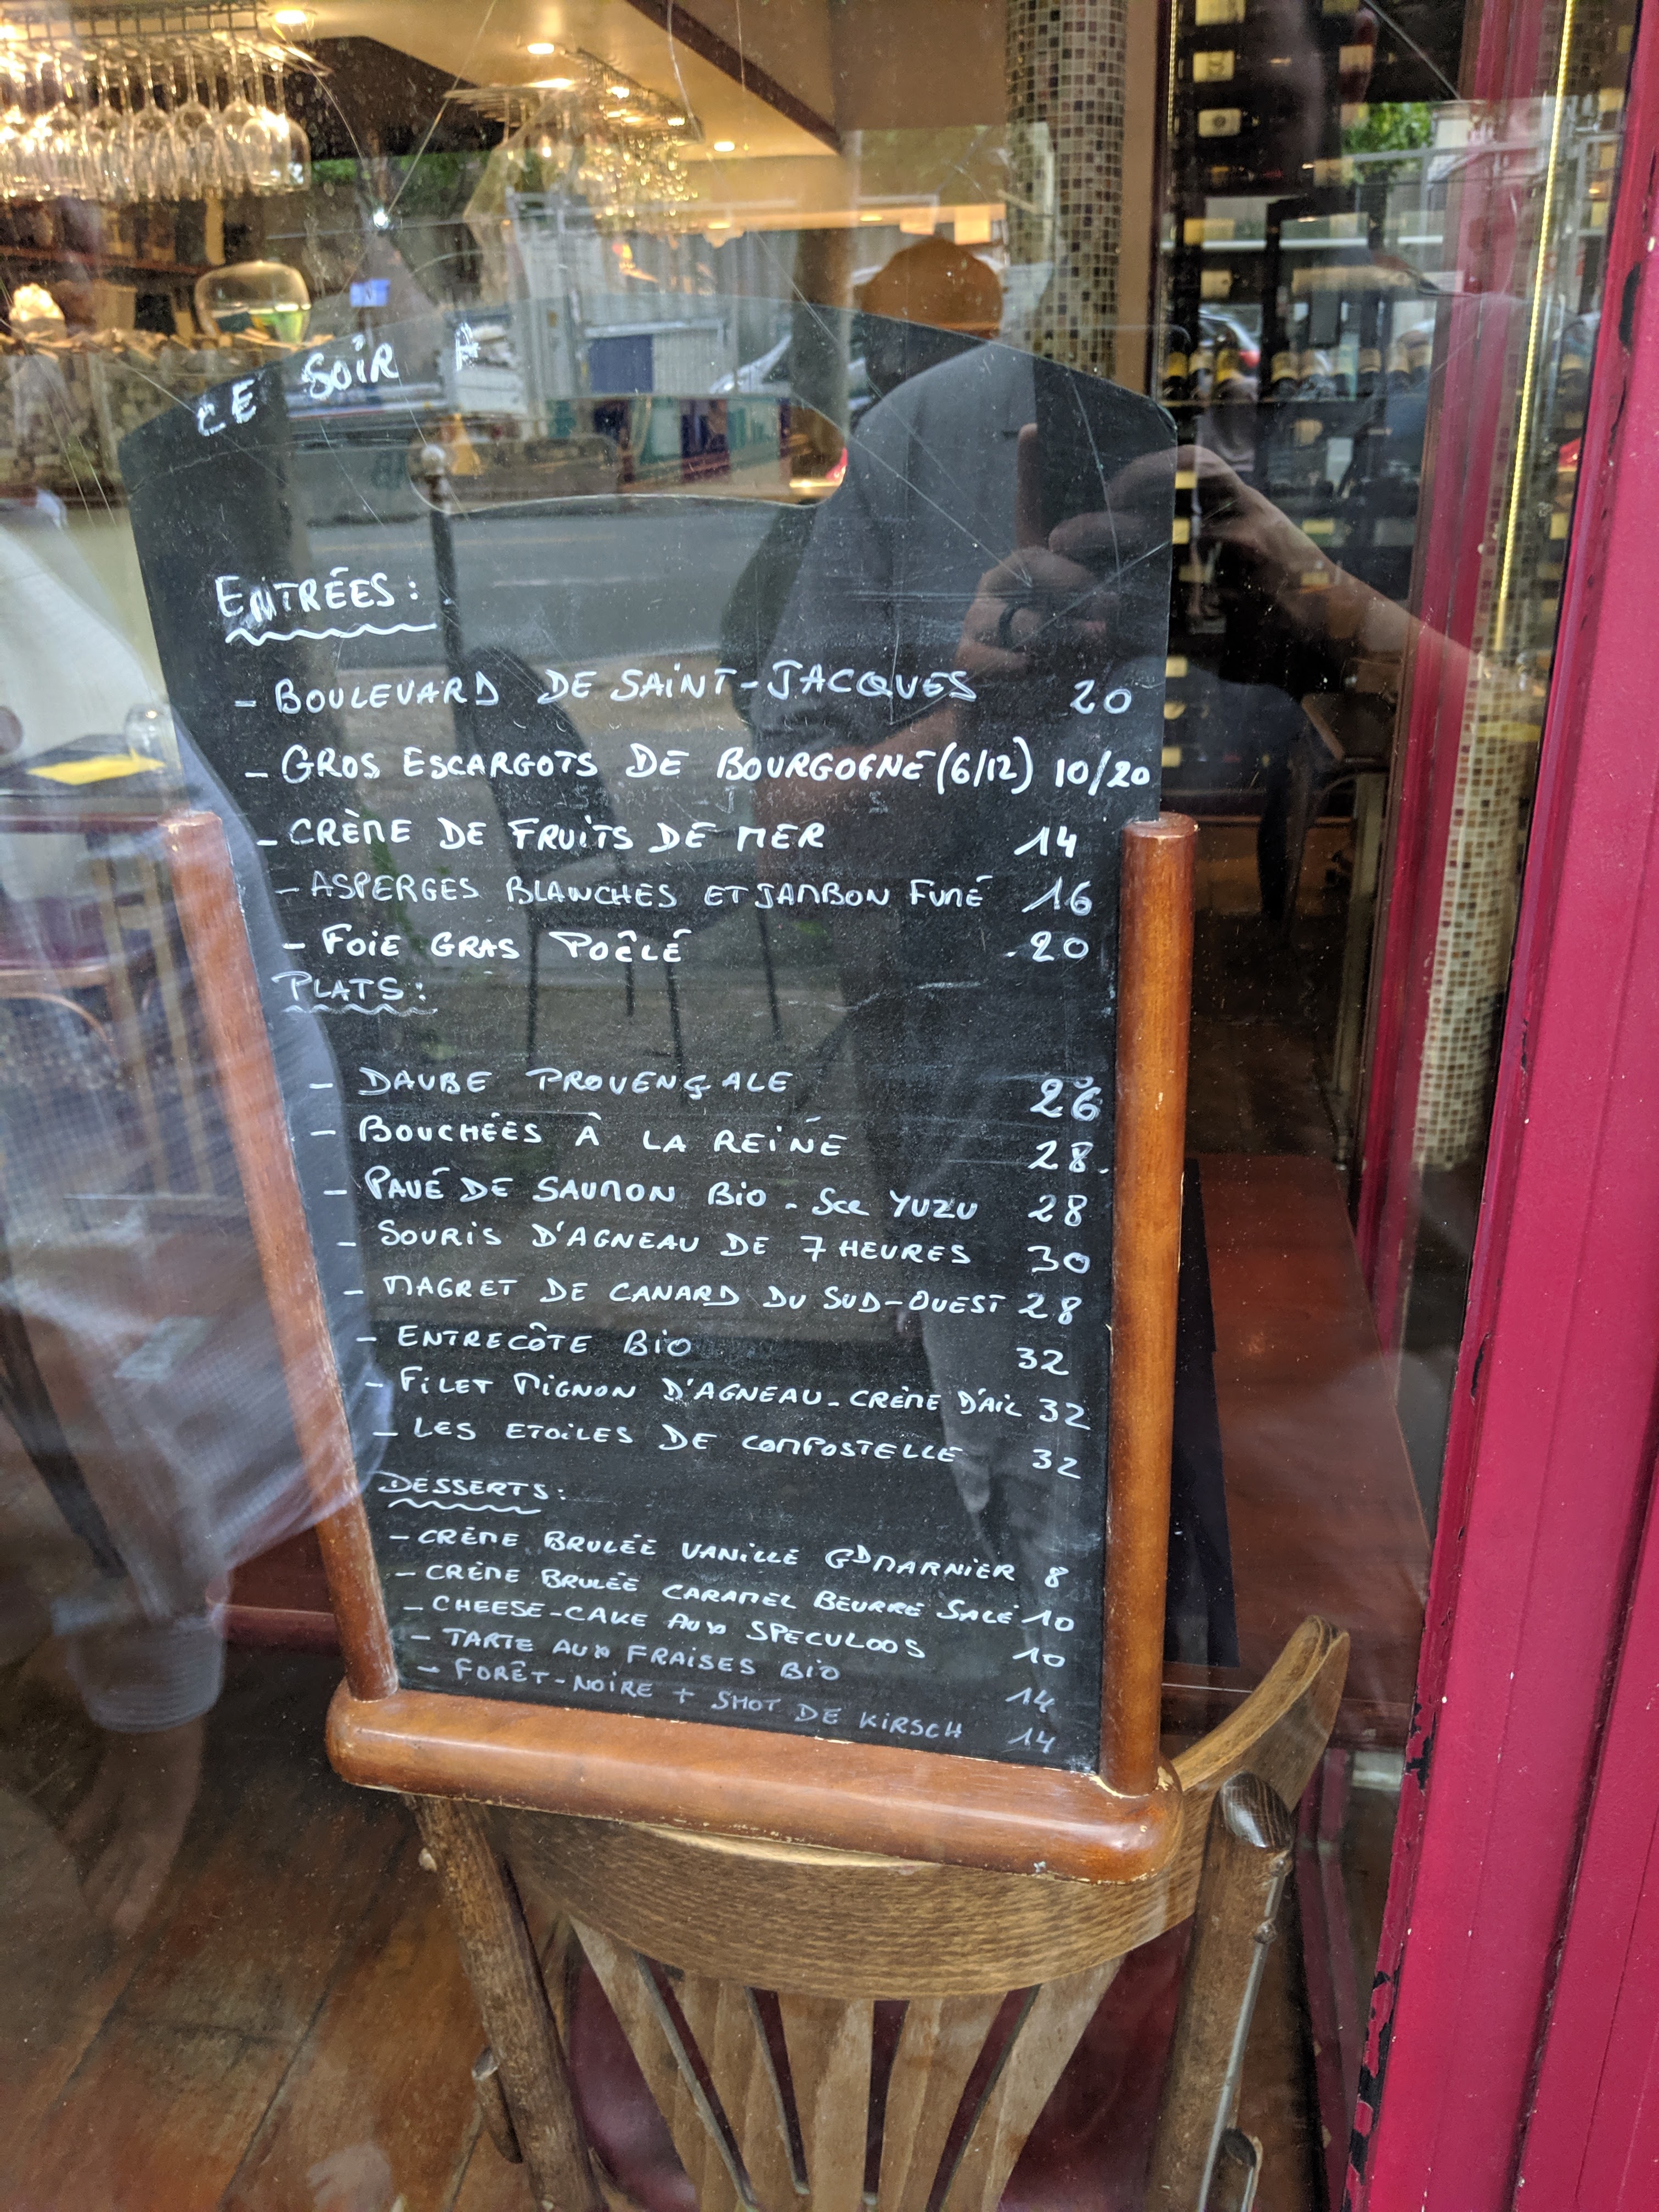 CE SOIR
ENTRÉES:
- BOULEVARD DE SAINT-JACQUES 20
- GROS ESCARGOTS DE BOURGOGNE (6/12) 10/20
- CRÈME DE FRUITS DE MER 14
- ASPERGES BLANCHES ET JAMBON FUMÉ 16
- FOIE GRAS POÊLÉ 20
PLATS:
- DAUBE PROVENÇALE 26
- BOUCHÉES À LA REINE 28
- PAVÉ DE SAUMON BIO - Sce YUZU 28
- SOURIS D'AGNEAU DE 7 HEURES 30
- MAGRET DE CANARD DU SUD-OUEST 28
- ENTRECÔTE BIO 32
- FILET MIGNON D'AGNEAU - CRÈME D'AIL 32
- LES ETOILES DE COMPOSTELLE 32
DESSERTS:
- CRÈME BRULÉE VANILLE GD MARNIER 8
- CRÈME BRULÉE CARAMEL BEURRE SALÉ 10
- CHEESE-CAKE AUX SPECULOOS 10
- TARTE AUX FRAISES BIO 14
- FORÊT-NOIRE + SHOT DE KIRSCH 14